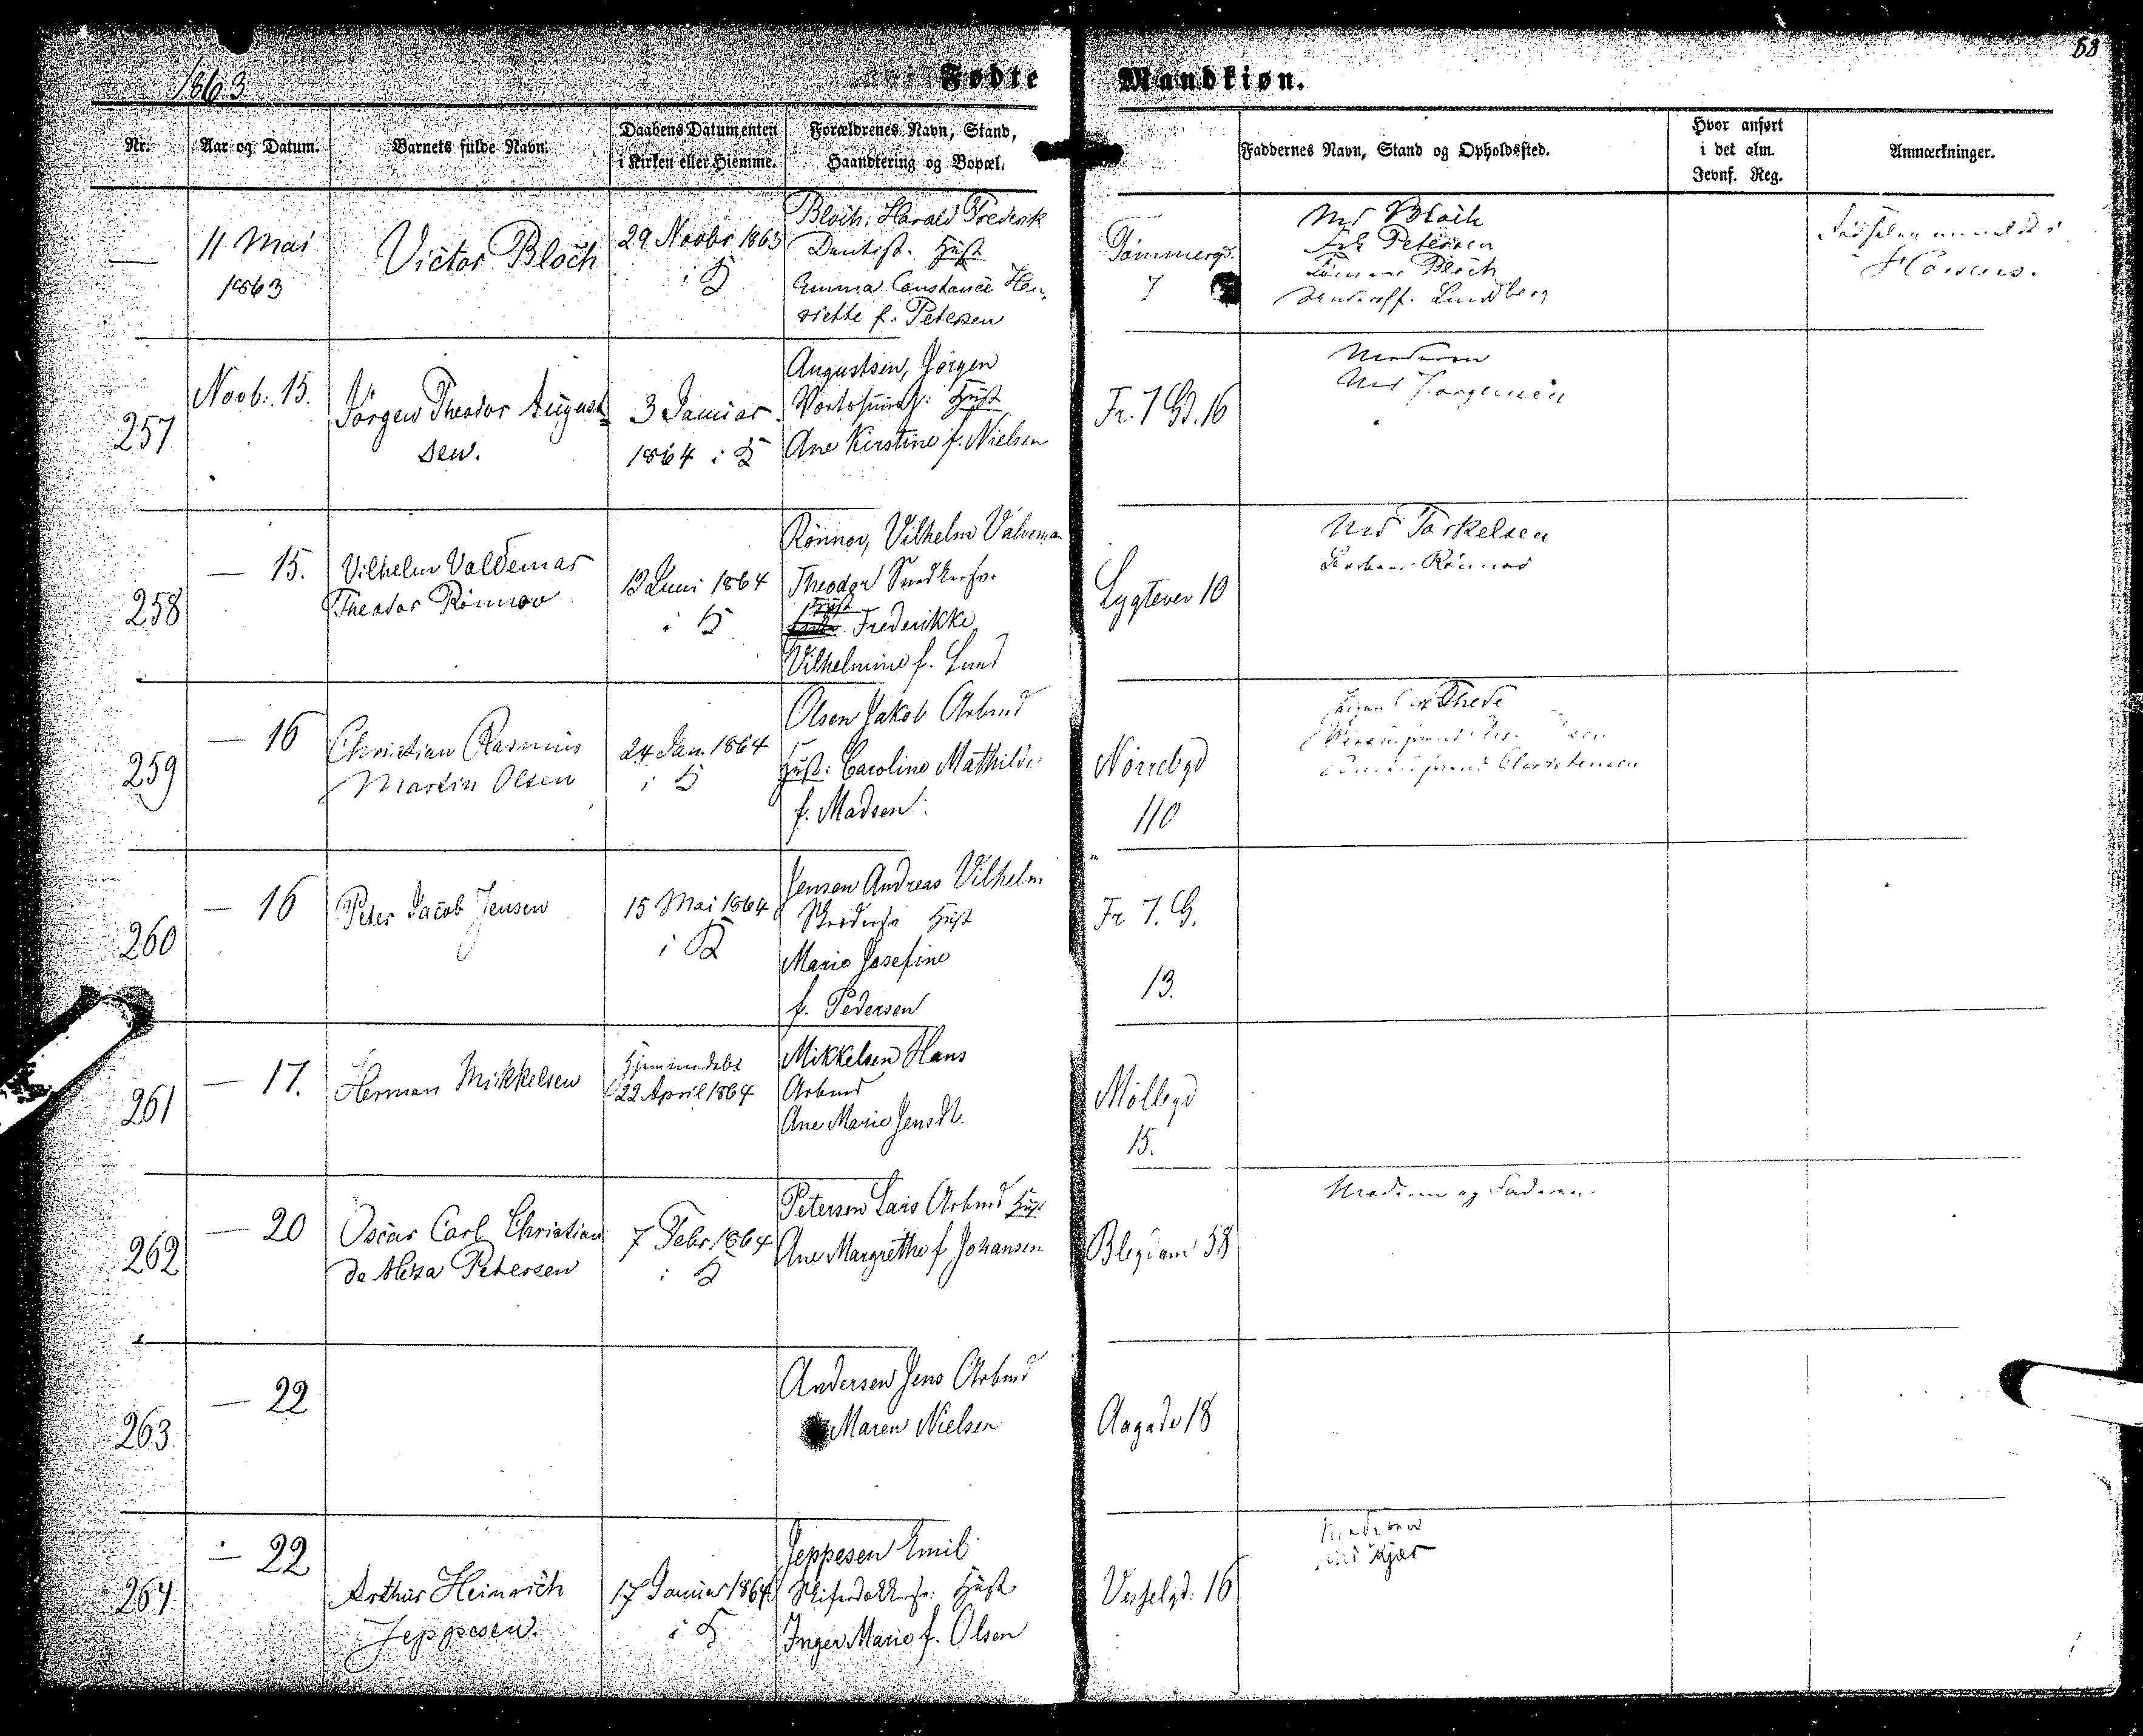 1863
Fødte
Mandkiøn.
53
Nr.
Aar og Datum.
Barnets fulde Navn.
Daabens Datum enten
i Kirken eller Hiemme.
Forældrenes Navn, Stand,
Haandtering og Bopæl.
Faddernes Navn, Stand og Opholdssted.
Hvor anført
i det alm.
Jevnf. Reg.
Anmærkninger.
—
11 Mai
1863
Victor Bloch
29 Novbr 1863
i K
Bloch, Harald Frederik
Dentist. Hust
Emma Constance Hen-
riette f. Petersen
Tømmergd.
7
Md Bloch
Frk Petersen
Bloch
Lundberg
Fødselen anmeldt i
Horsens.
257
Novb: 15.
Jörgen Theodor August
sen.
3 Januar
1864 i K
Augustsen, Jörgen
Hust
Ane Kirstine f. Nielsen
Fr. 7 Gd. 16
Moderen
Md Jørgensen
258
— 15.
Vilhelm Valdemar
Theodor Rönnov
12 Juni 1864
i K
Rönnov, Vilhelm Valdemar
Theodor Snedkersv.
Hust
Frederikke
Vilhelmine f. Lund
Lygtevei 10
Md Torkelsen
Rönnov
259
— 16
Christian Rasmus
Martin Olsen
24 Jan 1864
i K
Olsen Jakob Arbmd
Hust: Caroline Mathilde
f. Madsen
Nørrebgd
110
Thede
Christensen
260
— 16
Peter Jacob Jensen
15 Mai 1864
i K
Jensen Andreas Vilhelm
Skrædersv Hust
Marie Josefine
f. Pedersen
Fr 7. G.
13.
261
— 17.
Herman Mikkelsen
Hjemmedøbt
22 April 1864
Mikkelsen Hans
Arbmd
Ane Marie Jensdt.
Møllegd
15.
262
— 20
Oscar Carl Christian
de Meza Petersen
7 Febr 1864
i K
Petersen Lars Arbmd Hust
Ane Margrethe f Johansen
Blegdam 58
Moderen og Faderen
263
— 22
Andersen Jens Arbmd
Maren Nielsen
Aagade 18
264
— 22
Arthur Heinrich
Jeppesen.
17 Januar 1864
i K
Jeppesen Emil
Skiferdækkersv: Hust
Inger Marie f. Olsen
Vesselgd. 16
Moderen
Md Kjær